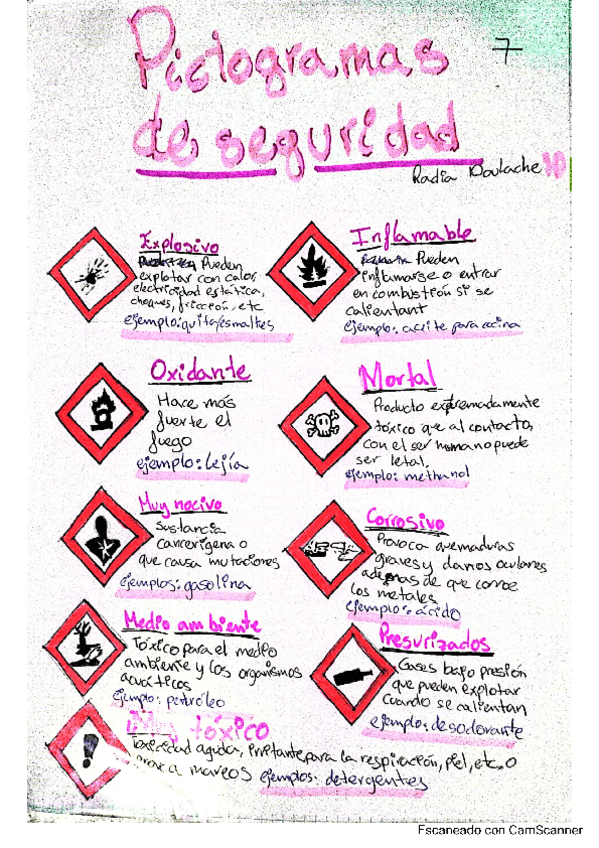 Pictogramas
7
de seguridad
Radia
Explosivo
Pueden
explotar con calor,
electricidad estática,
choques, fricción, etc
ejemplo: quitaesmaltes
Inflamable
Pueden
inflamarse o entrar
en combustión si se
calientant
ejemplo: aceite para cocina
Oxidante
Hace más
fuerte el
fuego
ejemplo: Lejía
Mortal
Producto extremadamente
tóxico que al contacto
con el ser humano puede
ser letal.
ejemplo: methanol
Muy nocivo
Sustancia
cancerígena o
que causa mutaciones
ejemplos: gasolina
Corrosivo
Provoca quemaduras
graves y danos oculares
ademas de que corroe
los metales
ejemplo: ácido
Medio ambiente
Tóxico para el medio
ambiente y los organismos
acuáticos
ejemplo: petróleo
Presurizados
Gases bajo presión
que pueden explotar
cuando se calientan
ejemplo: desodorante
tóxico
toxicidad aguda, irritante para la respiración, piel, etc. o
provoca mareos ejemplos: detergentes
Escaneado con CamScanner